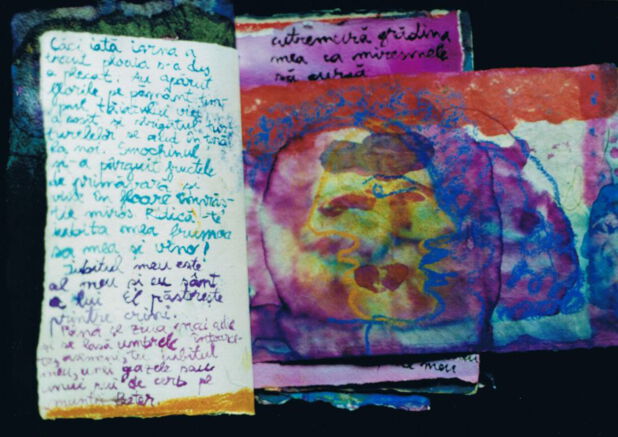 Căci iată iarna a
trecut ploaia s-a dus
a plecat. Au apărut
florile pe pământ tim-
pul
a sosit și
turelelor se aud în țara
la noi. Smochinul
și-a pârguit fructele
de primăvară și
vița în floare împrăș-
tie miros. Ridică-te
iubita mea frumoa
sa mea și vino!
Iubitul meu este
al meu și eu sânt
a lui El păstrește
printre crini.
Până se ziua mai
și se lasă umbrele întoarce-
te, asemeni, tu iubitul
meu, unei gazele sau
unui pui de cerb pe
munții Beter.
cutremură grădina
mea ca miresmele
să curgă
meu